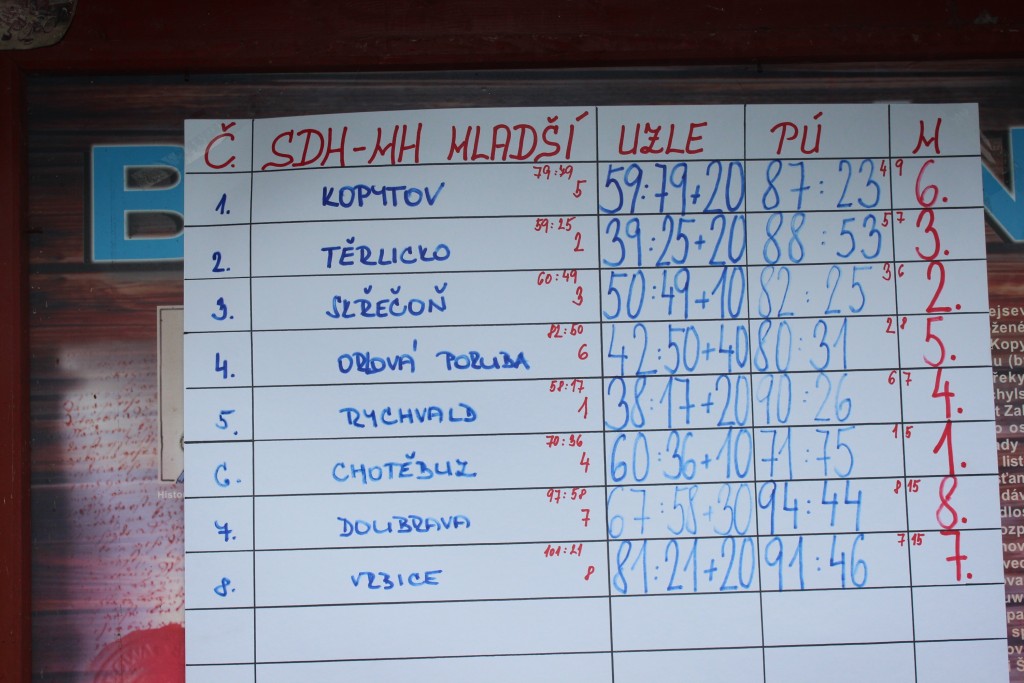 Č. SDH-MH MLADŠÍ UZLE PÚ M
1. KOPYTOV 79:79 5 59:79+20 87:23 4 9 6.
2. TĚRLICKO 59:25 2 39:25+20 88:53 5 7 3.
3. SKŘEČOŇ 60:49 3 50:49+10 82:25 3 6 2.
4. ORLOVÁ PORUBA 82:50 6 42:50+40 80:31 2 8 5.
5. RYCHVALD 58:17 1 38:17+20 90:26 6 7 4.
6. CHOTĚBUZ 70:36 4 60:36+10 71:75 1 5 1.
7. DOUBRAVA 97:58 7 67:58+30 94:44 8 15 8.
8. VRBICE 101:21 8 81:21+20 91:46 7 15 7.
B N